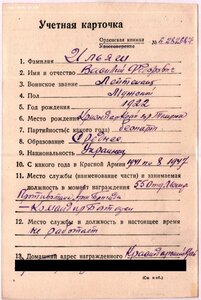 Учетная карточка
Орденская книжка
Удостоверение № Б 282267
1. Фамилия Ильяш
2. Имя и отчество Василий Федорович
3. Воинское звание Лейтенант
4. Пол Мужской
5. Год рождения 1922
6. Место рождения
7. Партийность (с какого года) беспарт
8. Образование Среднее
9. Национальность Украинец
10. С какого года в Красной Армии 1941 по 8 1947.
11. Место службы (наименование части) и занимаемая
должность в момент награждения 550
Командир Батареи
12. Место службы и должность в настоящее время
не работает
13. Домашний адрес награжденного
(См н об.)